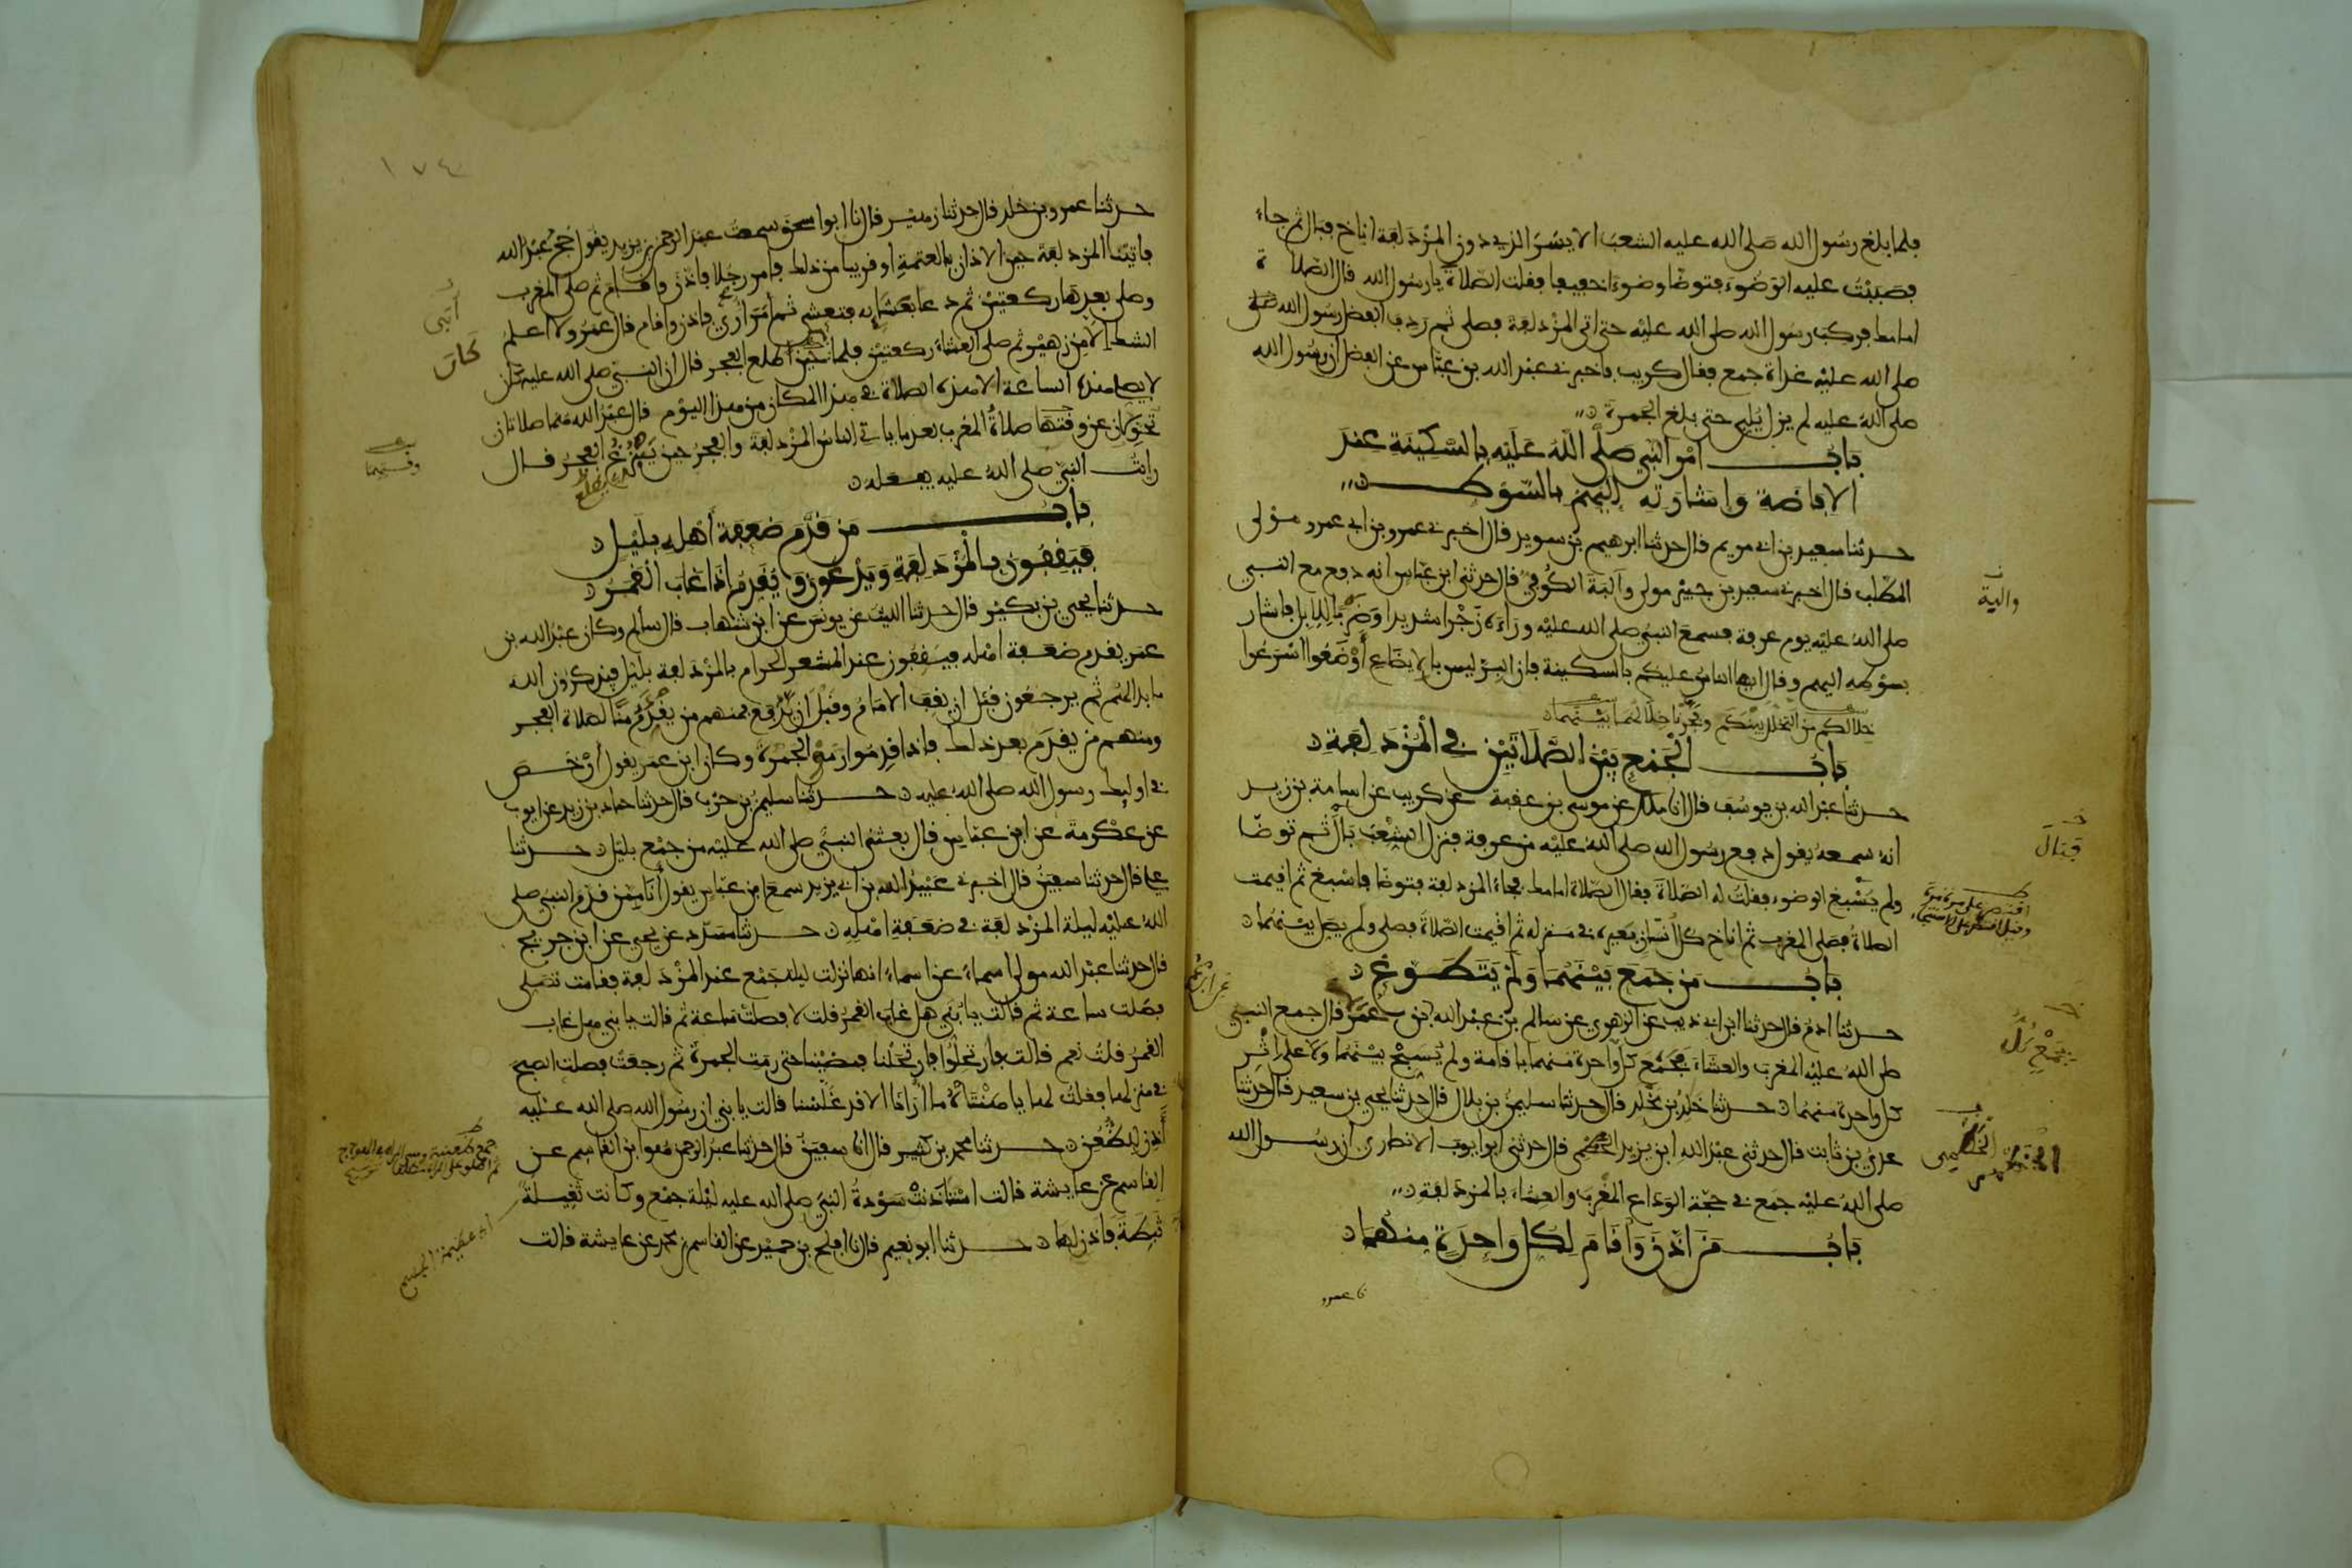 فلما بلغ رسول الله صلى الله عليه الشعب الايسر الذي دون المزدلفة اناخ فبال ثم جاء
فصببت عليه الوضوء فتوضا وضوءا خفيفا فقلت الصلاة يا رسول الله قال الصلاة
امامك فركب رسول الله صلى الله عليه حتى اتى المزدلفة فصلى ثم ردف الفضل رسول الله
صلى الله عليه غداة جمع فقال كريب فاخبرني عبد الله بن عباس عن الفضل ان رسول الله
صلى الله عليه لم يزل يلبي حتى بلغ الجمرة
باب امر النبي صلى الله عليه بالسكينة عند
الافاضة واشارته اليهم بالسوط
حدثنا سعيد بن ابي مريم قال حدثنا ابرهيم بن سويد قال اخبرني عمرو بن ابي عمرو مولى
المطلب قال اخبرني سعيد بن جبير مولى والبة الكوفي قال حدثني ابن عباس انه دفع مع النبي
صلى الله عليه يوم عرفة فسمع النبي صلى الله عليه وراءه زجرا شديدا وضربا للابل فاشار
بسوطه اليهم وقال ايها الناس عليكم بالسكينة فان البر ليس بالايضاع أوضعوا اسرعوا
خلالكم من التخلل بينكم وفجرنا خلالهما بينهما
باب الجمع بين الصلاتين في المزدلفة
حدثنا عبد الله بن يوسف قال انا ملك عن موسى بن عقبة عن كريب عن اسامة بن زيد
انه سمعه يقول دفع رسول الله صلى الله عليه من عرفة فنزل الشعب بال ثم توضا
ولم يسبغ الوضوء فقلت له الصلاة فقال الصلاة امامك فجاء المزدلفة فتوضا فاسبغ ثم اقيمت
الصلاة فصلى المغرب ثم اناخ كل انسان بعيره في منزله ثم اقيمت الصلاة فصلى ولم يصل بينهما
باب من جمع بينهما ولم يتطوع
حدثنا ادم قال حدثنا ابن ابي ذيب عن الزهري عن سالم بن عبد الله عن ابن عمر قال جمع النبي
صلى الله عليه المغرب والعشاء بجمع كل واحدة منهما باقامة ولم يسبح بينهما ولا على اثر
كل واحدة منهما حدثنا خلد بن مخلد قال حدثنا سليمن بن بلال قال حدثنا يحيى بن سعيد قال حدثنا
عدي بن ثابت قال حدثني عبد الله ابن يزيد الخطمي قال حدثني ابو ايوب الانصاري ان رسول الله
صلى الله عليه جمع في حجة الوداع المغرب والعشاء بالمزدلفة
باب من اذن واقام لكل واحدة منهما
والبة
فبال
بجمع كل
الخطمي
عن ابن
١٧٤
حدثنا عمرو بن خلد قال حدثنا زهير قال انا ابو اسحق سمعت عبد الرحمن بن يزيد يقول حج عبد الله
فاتينا المزدلفة حين الاذان بالعتمة او قريبا من ذلك فامر رجلا فاذن واقام ثم صلى المغرب
وصلى بعدها ركعتين ثم دعا بعشايه فتعشى ثم امر ارى فاذن واقام قال عمرو ولا اعلم
الشك الا من زهير ثم صلى العشاء ركعتين فلما حين طلع الفجر قال ان النبي صلى الله عليه كان
لا يصلي هذه الساعة الا هذه الصلاة في هذا المكان من هذا اليوم قال عبد الله هما صلاتان
تحولان عن وقتها صلاة المغرب بعد ما ياتي الناس المزدلفة والفجر حين يبزغ الفجر قال
رايت النبي صلى الله عليه يفعله
باب من قدم ضعفة أهله بليل
فيقفون بالمزدلفة ويدعون ويقدم اذا غاب القمر
حدثنا يحيى بن بكير قال حدثنا الليث عن يونس عن ابن شهاب قال سالم وكان عبد الله بن
عمر يقدم ضعفة اهله فيقفون عند المشعر الحرام بالمزدلفة بليل فيذكرون الله
ما بدا لهم ثم يرجعون قبل ان يقف الامام وقبل ان يدفع فمنهم من يقدم منًا لصلاة الفجر
ومنهم من يقدم بعد ذلك فاذا قدموا رموا الجمرة وكان ابن عمر يقول أرخص
في اوليك رسول الله صلى الله عليه حدثنا سليمن بن حرب قال حدثنا حماد بن زيد عن ايوب
عن عكرمة عن ابن عباس قال بعثني النبي صلى الله عليه من جمع بليل حدثنا
علي قال حدثنا سفين قال اخبرني عبيد الله بن ابي يزيد سمع ابن عباس يقول أنا ممن قدم النبي صلى
الله عليه ليلة المزدلفة في ضعفة اهله حدثنا مسدد عن يحيى عن ابن جريج
قال حدثنا عبد الله مولى اسماء عن اسماء انها نزلت ليلة جمع عند المزدلفة فقامت تصلي
فصلت ساعة ثم قالت يا بني هل غاب القمر قلت لا فصلت ساعة ثم قالت يا بني هل غاب
القمر قلت نعم قالت فارتحلوا فارتحلنا فمضينا حتى رمت الجمرة ثم رجعت فصلت الصبح
في منزلها فقلت لها يا هنتاه ما ارانا الا قد غلسنا قالت يا بني ان رسول الله صلى الله عليه
أذن للظعن حدثنا محمد بن كثير قال انا سفين قال حدثنا عبد الرحمن هو ابن القاسم عن
القاسم عن عايشة قالت استاذنت سودة النبي صلى الله عليه ليلة جمع وكانت ثقيلة
ثبطة فاذن لها حدثنا ابو نعيم قال انا افلح بن حميد عن القاسم بن محمد عن عايشة قالت
كان
وقتهما
اي عظيمة الجسم